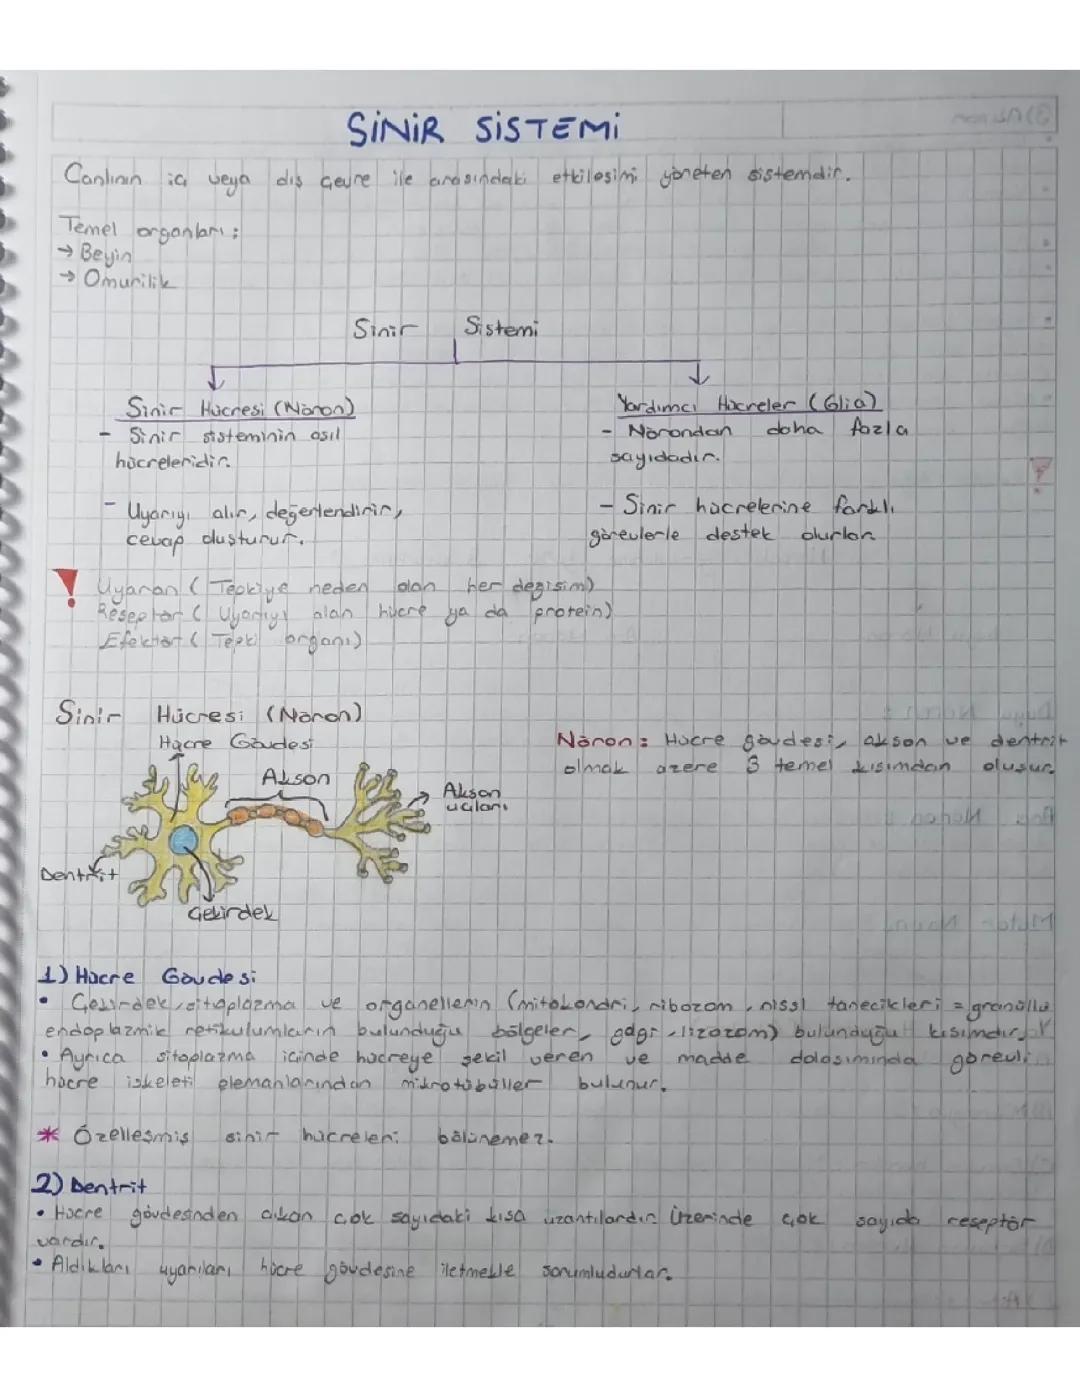 SİNİR SİSTEMİ
Canlının iç veya dış çevre ile arasındaki etkileşimi yöneten sistemdir.
Temel organları:
→ Beyin
→ Omurilik
Sinir Sistemi
Sinir Hücresi (Nöron)
- Sinir sisteminin asıl
hücreleridir.
- Uyarıyı alır, değerlendirir,
cevap oluşturur.
Yardımcı Hücreler (Glia)
- Nörondan daha fazla
sayıdadır.
- Sinir hücrelerine farklı
görevlerle destek olurlar
! Uyaran (Tepkiye neden olan her değişim)
Reseptör (Uyarıyı alan hücre ya da protein)
Efektör (Tepki organı)
Sinir Hücresi (Nöron)
Hücre Gövdesi
Akson
Akson
uçları
Dentrit
Çekirdek
Nöron: Hücre gövdesi, akson ve dentrit
olmak üzere 3 temel kısımdan oluşur.
1) Hücre Gövdesi
• Çekirdek, sitoplazma ve organellerin (mitokondri, ribozom, nissl tanecikleri = granüllü
endoplazmik retikulumların bulunduğu bölgeler, golgi, lizozom) bulunduğu kısımdır.
• Ayrıca sitoplazma içinde hücreye şekil veren ve madde dolaşımında görevli
hücre iskeleti elemanlarından mikrotübüller bulunur.
* Özelleşmiş sinir hücreleri bölünemez.
2) Dentrit
• Hücre gövdesinden çıkan çok sayıdaki kısa uzantılardır. Üzerinde çok sayıda reseptör
vardır.
• Aldıkları uyarıları hücre gövdesine iletmekle sorumludurlar.